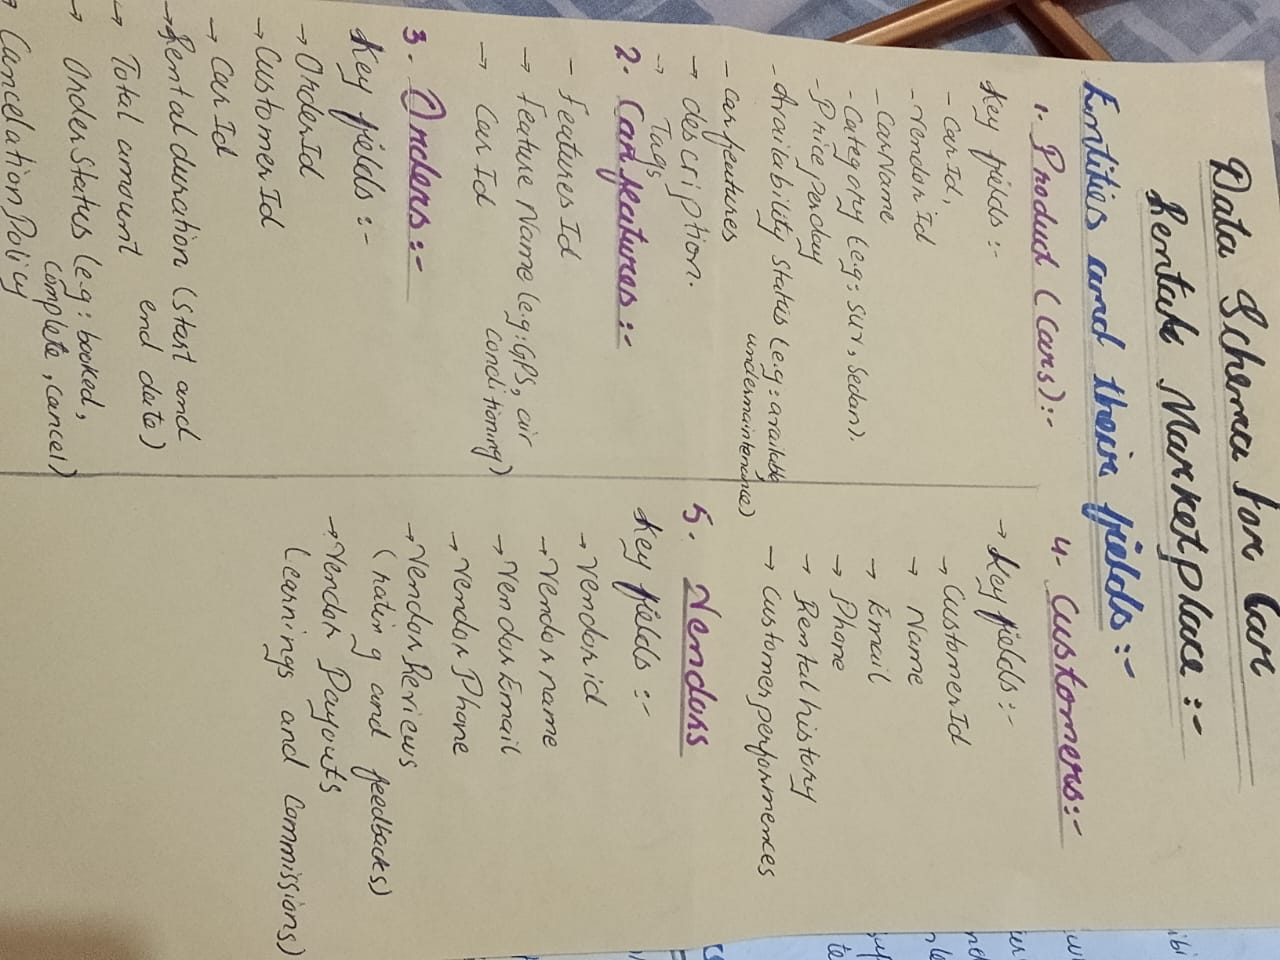 Data Schema for Car
Rental Marketplace:-
Entities and their fields:-
1. Product (Cars):-
Key fields:-
- carId,
- Vendor Id
- CarName
- Category (e.g: suv, sedan).
- Price per day
- Availability status (e.g: available,
undermaintenance)
- car features
→ description.
→ Tags
2. Car features:-
- features Id
→ feature Name (e.g: GPS, air
conditioning)
→ Car Id
3. Orders:-
Key fields:-
→ OrderId
→ Customer Id
→ Car Id
→ Rental duration (start and
end date)
→ Total amount
→ Order Status (e.g: booked,
complete, cancel)
→ Cancelation Policy
4- Customers:-
→ Key fields:-
→ CustomerId
→ Name
→ Email
→ Phone
→ Rental history
→ Customer performences
5. Vendors
Key fields:-
→ Vendor id
→ Vendor name
→ Vendor Email
→ Vendor Phone
→ Vendor Reviews
(rating and feedbacks)
→ Vendor Payouts
(earnings and commissions)